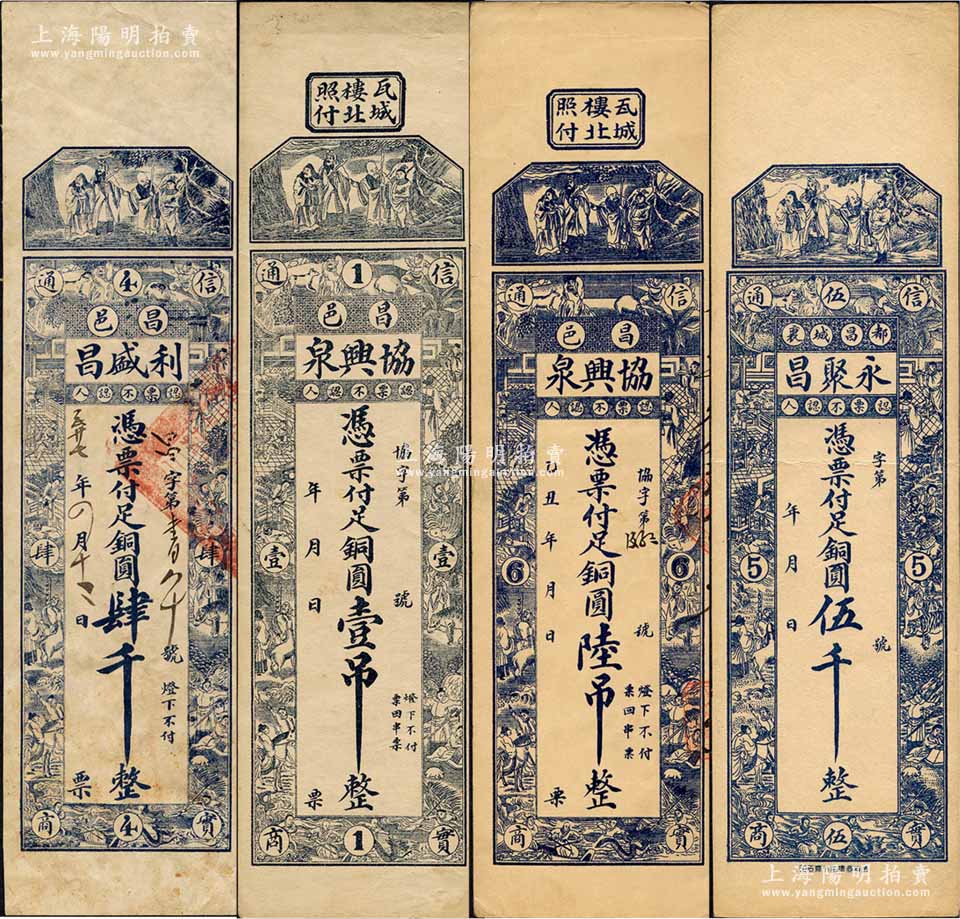 上海陽明拍賣
www.yangmingauction.com
信4通
昌邑
利盛昌
認票不認人
字第
號
憑票付足銅圓肆千整
年四月十二日
燈下不付
票
肆
肆
實4商
瓦城
樓北
照付
信1通
昌邑
協興泉
認票不認人
協字第
號
憑票付足銅圓壹吊整
年月日
燈下不付
票回串票
票
壹
壹
實1商
瓦城
樓北
照付
信通
昌邑
協興泉
認票不認人
協字第
號
憑票付足銅圓陸吊整
己丑年月日
燈下不付
票回串票
票
6
6
實商
上海陽明拍賣
www.yangmingauction.com
信伍通
都昌城裏
永聚昌
認票不認人
字第
號
憑票付足銅圓伍千整
年月日
5
5
實伍商
上海陽明拍賣
www.yangmingauction.com